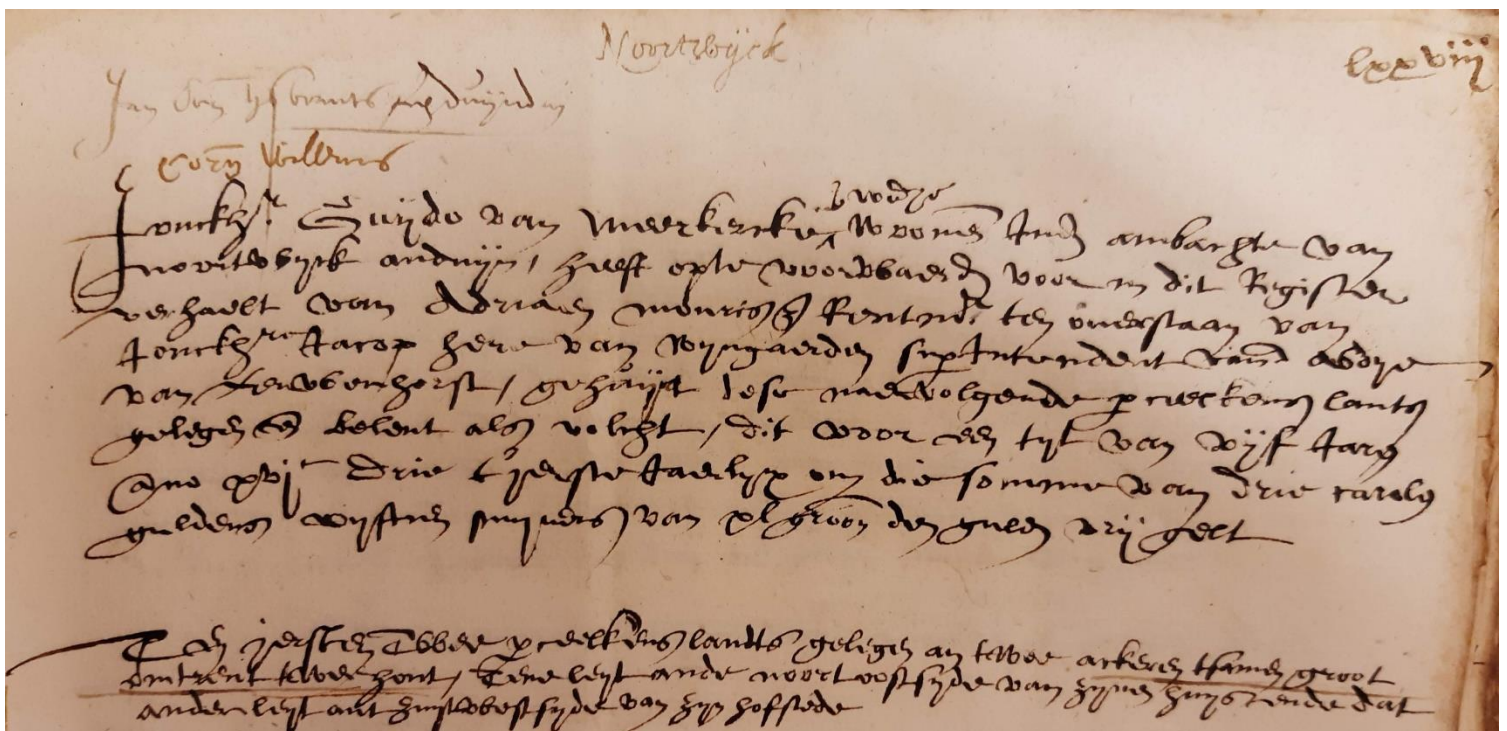 Noortwijck
lxxviij
Jan Corn ysbrants
Corn willems
wedze
Jonckhr Guijdo van Meerkercke woonen Inden ambachte van
noortwijck anduijn, heeft opte voorwaerden voor in dit Register
verhaelt van Adriaen mouricss Rentmr ten overstaan van
Jonckhre Jacop here van wijngaerden supIntendent vand Abdye
van Leeuwenhorst, gehuijrt dese naevolgende pceelkens lants
gelegen en belent als volcht, dit voor een tijt van vijf Jaren
Ano xvjc drie tyerste Jaerlijx om die somme van drie carolus
guldens vijftien stuijvers van xl groon den gulden vrij gelt
Ten yersten Twee pceelkens landts gelegen an twee ackeren tsamen groot
omtrent twee hont, Teene leyt ande noortoostsyde van zijnen huijs ende dat
ander leyt ant zuijtwestsyde van zijn hofstede